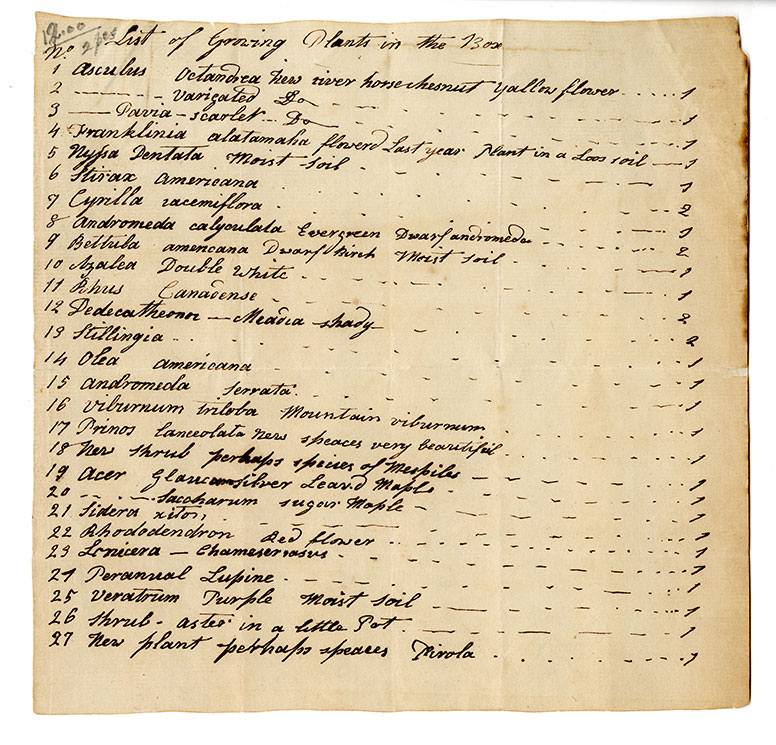 12.00
2 pcs
List of Growing Plants in the Box
No.
1 Asculus Octandrea New river horsechesnut yallow flower 1
2 — Varigated Do 1
3 — Pavia - scarlet Do 1
4 Franklinia alatamaha flowerd Last year Plant in a Loos soil 1
5 Nypa Dentata Moist soil 1
6 Stirax americana 2
7 Cyrilla racemiflora 1
8 Andromeda calyculata Evergreen Dwarf andromeda 2
9 Bettula americana Dwarf Birch Moist soil 1
10 Azalea Double White 1
11 Rhus Canadense 2
12 Dedecatheonor — Meadia shady 2
13 Stillingia 1
14 Olea americana 1
15 Andromeda serrata 1
16 Viburnum triloba Mountain viburnum 1
17 Prinos lanceolata New speaces very beautifil 1
18 New Shrub perhaps species of Mespiles 1
19 Acer Glaucum Silver Leavd Maple 1
20 — Saccharum sugar Maple 1
21 Sidera xilon, 1
22 Rhododendron Red flower 1
23 Lonicera — Chameserasus 1
24 Peranual Lupine 1
25 Veratrum Purple Moist Soil 1
26 Shrub - aster in a little Pot 1
27 New plant perhaps speaces Pirola 1